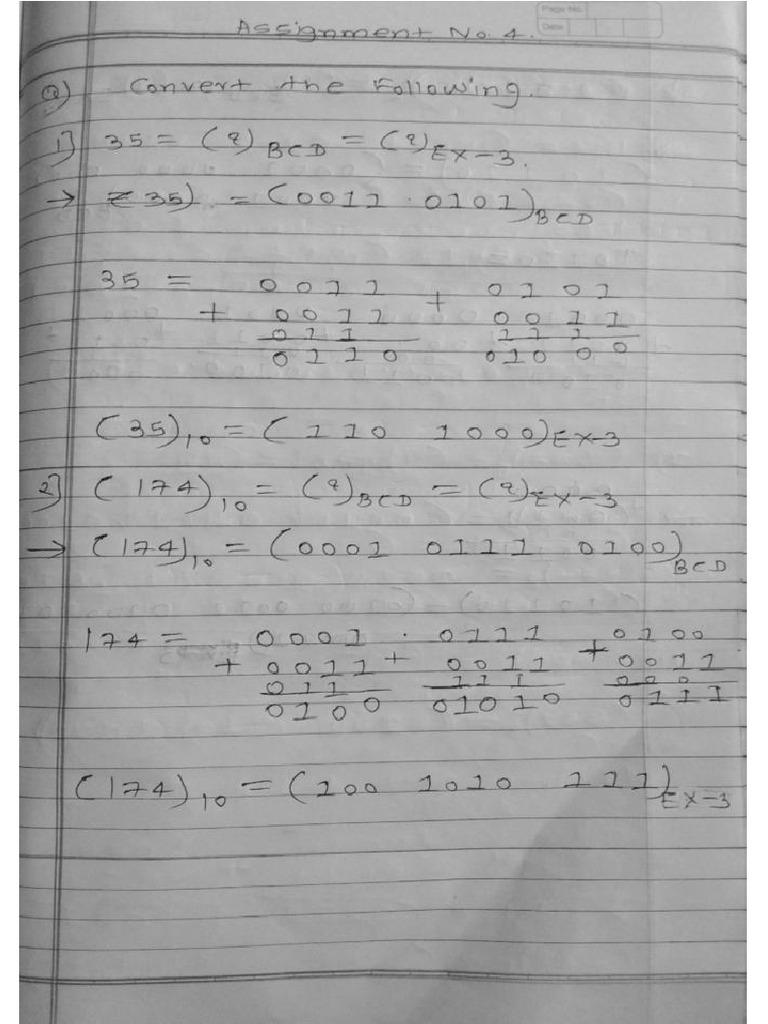 Page No.
Date
Assignment No. 4.
Q) Convert the Following.
1] 35 = (?)BCD = (?)EX-3.
→ 35) = (0011 . 0101)BCD
35 = 0011 + 0101
+ 0011 0011
011 111
0110 01000
(35)10 = (110 1000)EX-3
2] (174)10 = (?)BCD = (?)EX-3
→ (174)10 = (0001 0111 0100)BCD
174 = 0001 . 0111 + 0100
+ 0011 + 0011 0011
011 111 000
0100 01010 0111
(174)10 = (100 1010 111)EX-3